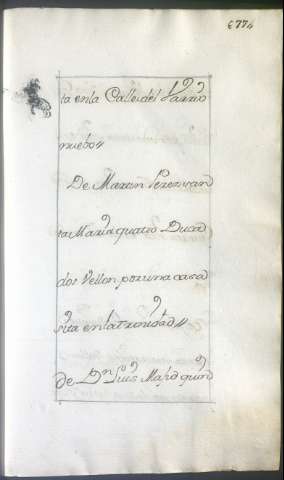 677
ta en la Calle del Varrio
nuebo //
De Martin Perez san
ta Maria quatro Duca
dos Vellon por una casa
sita en la trinidad //
de Dn Luis Maho quin